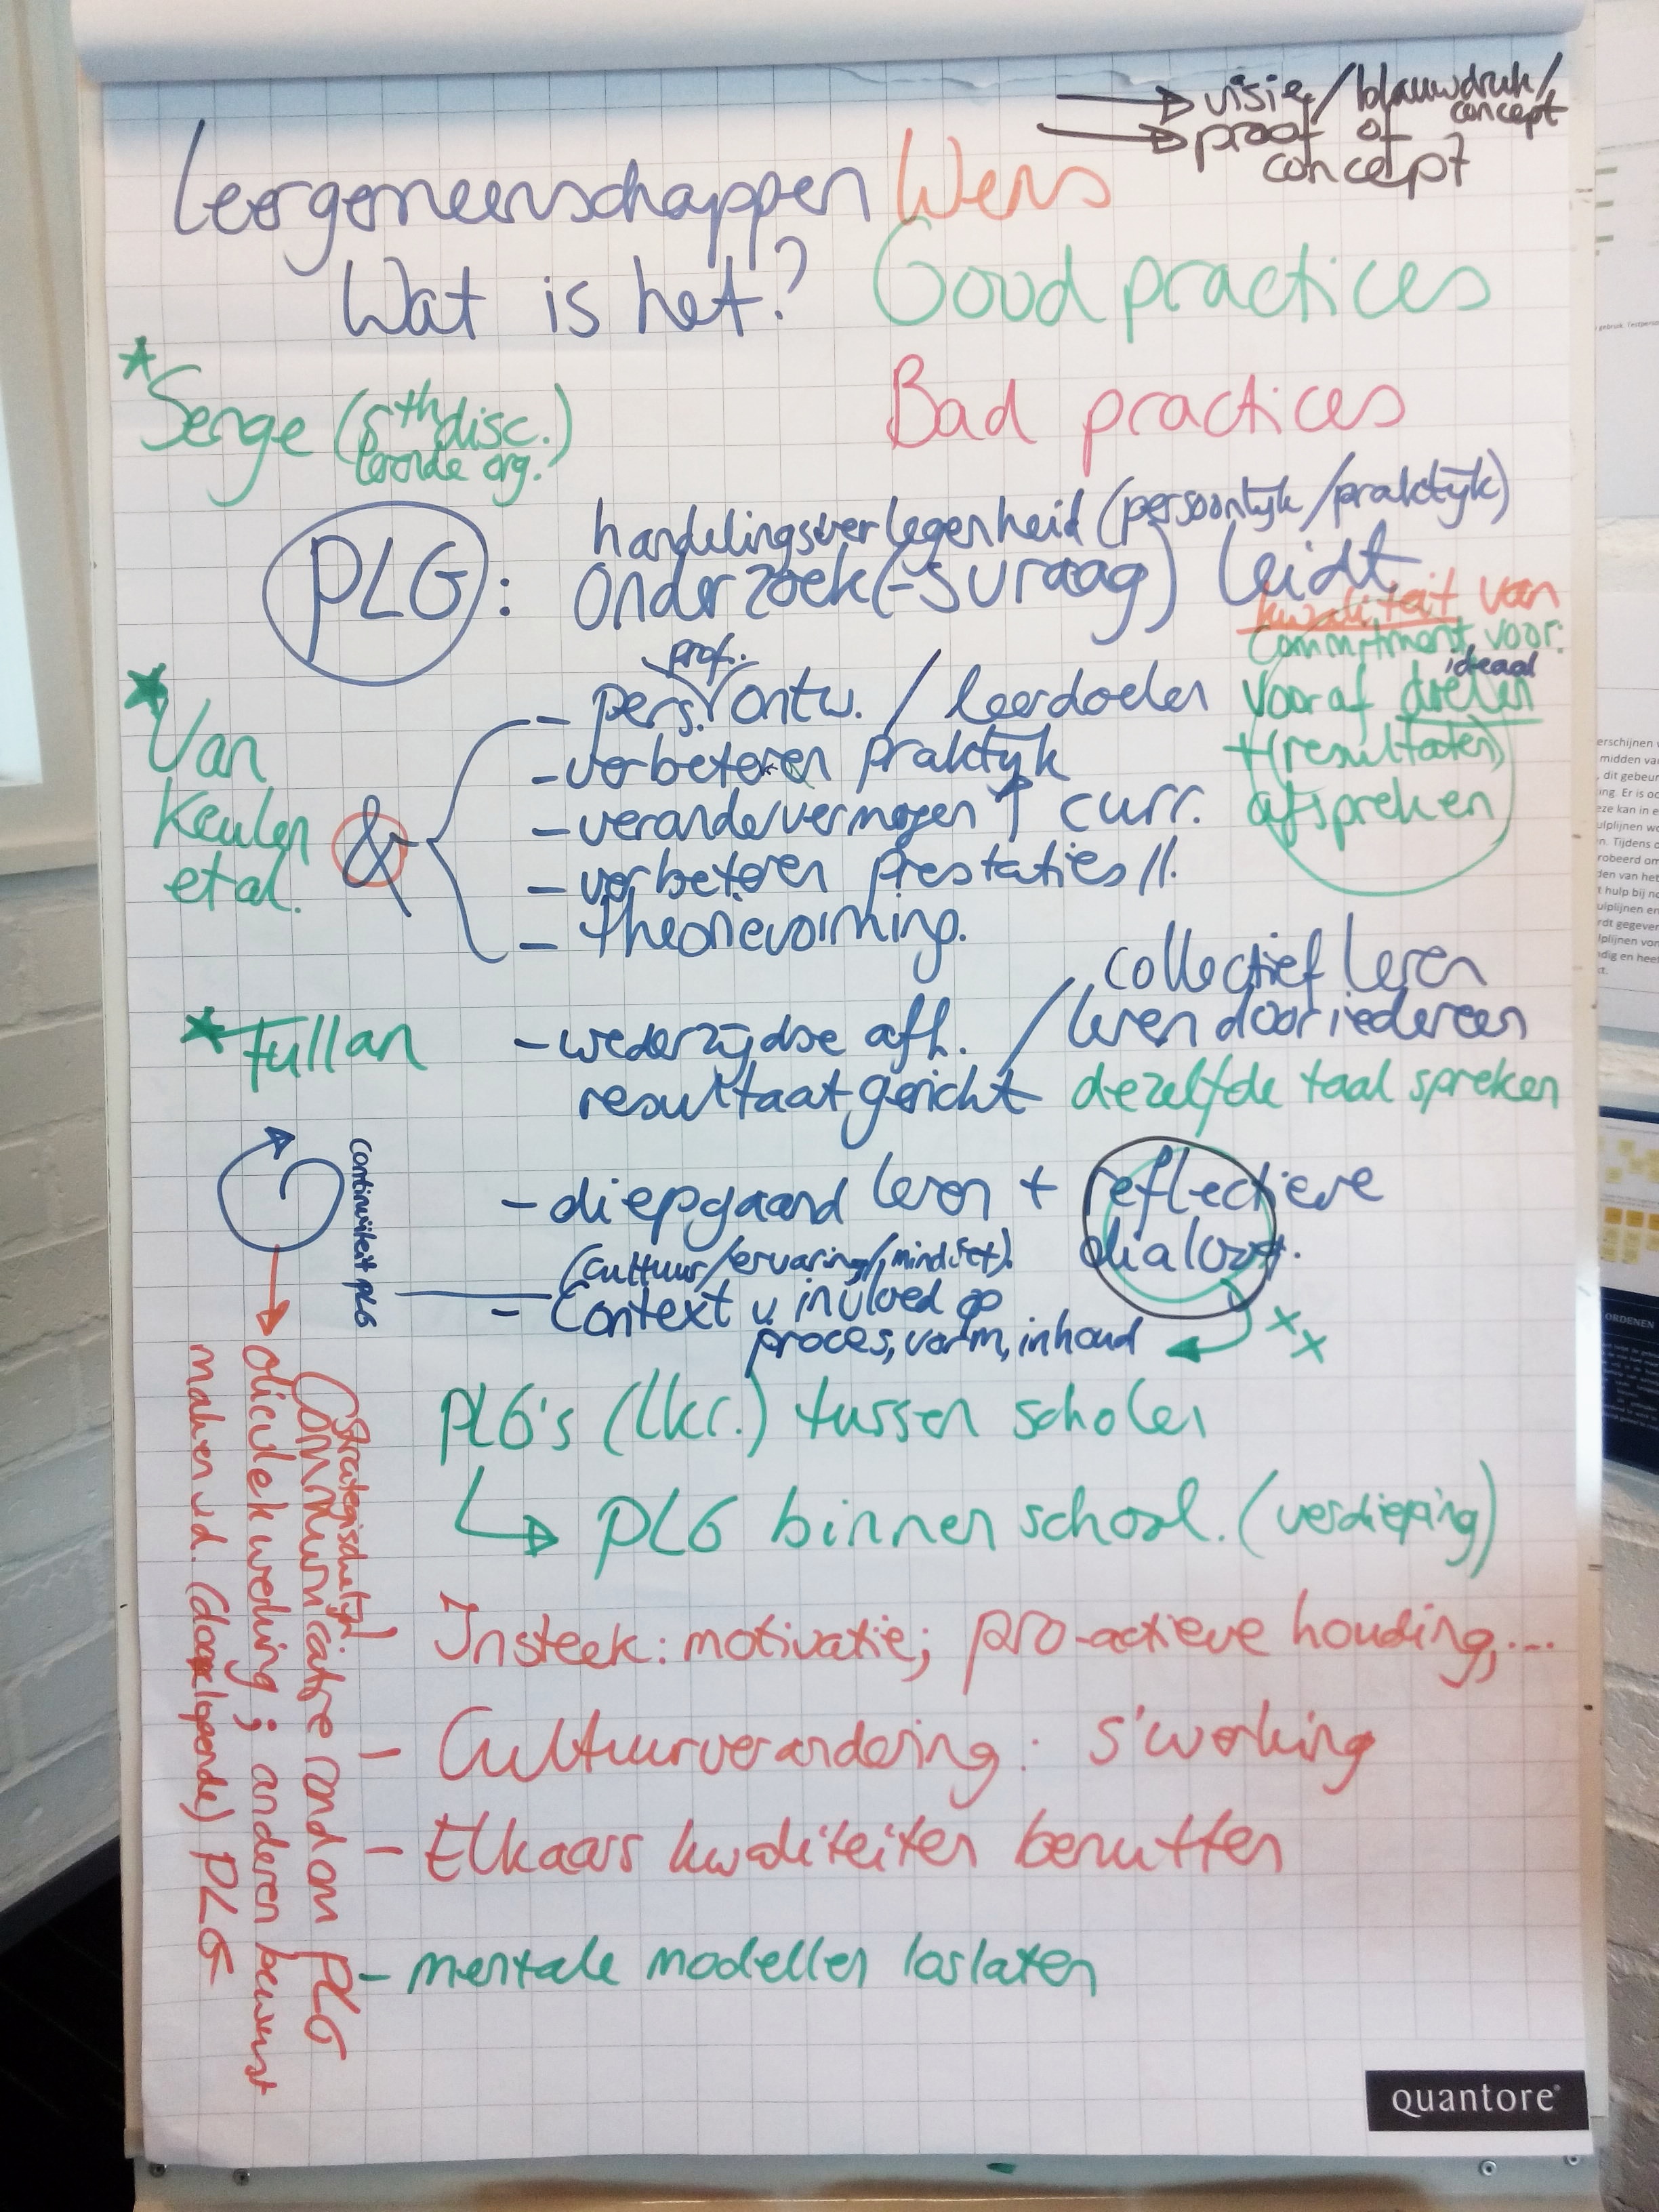 visie / blauwdruk /
concept
proof of
concept
Leergemeenschappen Wens
Wat is het? Good practices
Senge (5th disc.)
lerende org.
Bad practices
handelingsverlegenheid (persoonlijk/praktijk)
PLG: Onderzoek(-svraag) leidt
kwaliteit van
commitment voor:
ideaal
vooraf doelen
+(resultaten)
afspreken
Van
Keulen
et al.
&
prof.
- pers. ontw. / leerdoelen
- verbeteren praktijk
- verandervermogen ↑ curr.
- verbeteren prestaties ll.
- theorievorming.
Fullan
- wederzijdse afh. / collectief leren
leren door iedereen
resultaatgericht dezelfde taal spreken
continuïteit PLG
- diepgaand leren + reflectieve
dialoog.
(cultuur/ervaring/mindset)
- Context v. invloed op
proces, vorm, inhoud
x x
PLG's (lkr.) tussen scholen
↳ PLG binnen school. (verdieping)
Insteek: motivatie; pro-actieve houding,...
- Cultuurverandering: s'working
- Elkaars kwaliteiten benutten
- mentale modellen loslaten
(Strategische
Communicatie rondom PLG
olievlekwerking; anderen bewust
maken v.d. (doorlopende) PLG
quantore